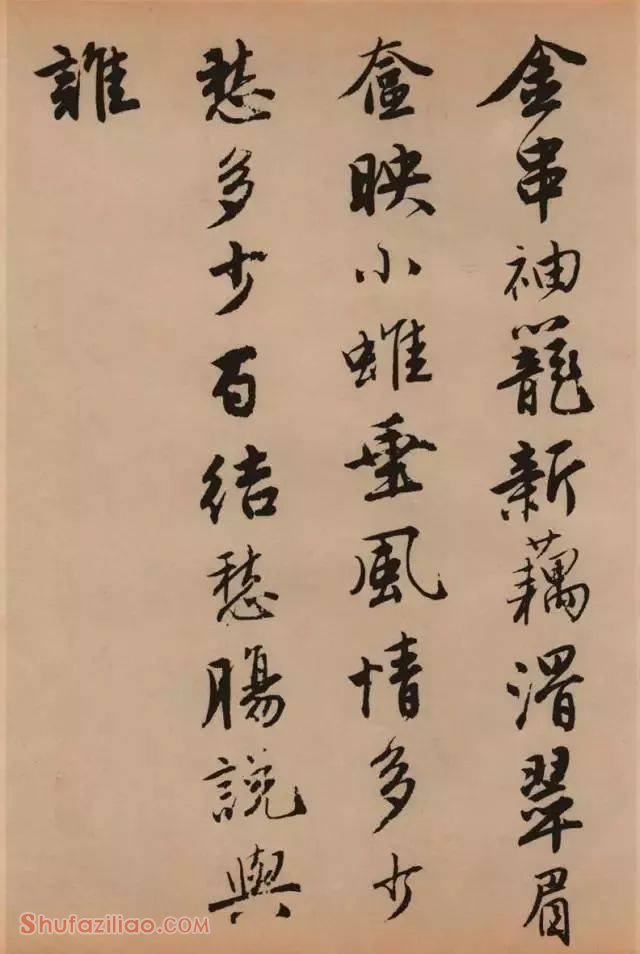 金串袖籠新藕滑翠眉
奩映小蛾垂風情多少
愁多少百結愁腸說與
誰
Shufaziliao.com